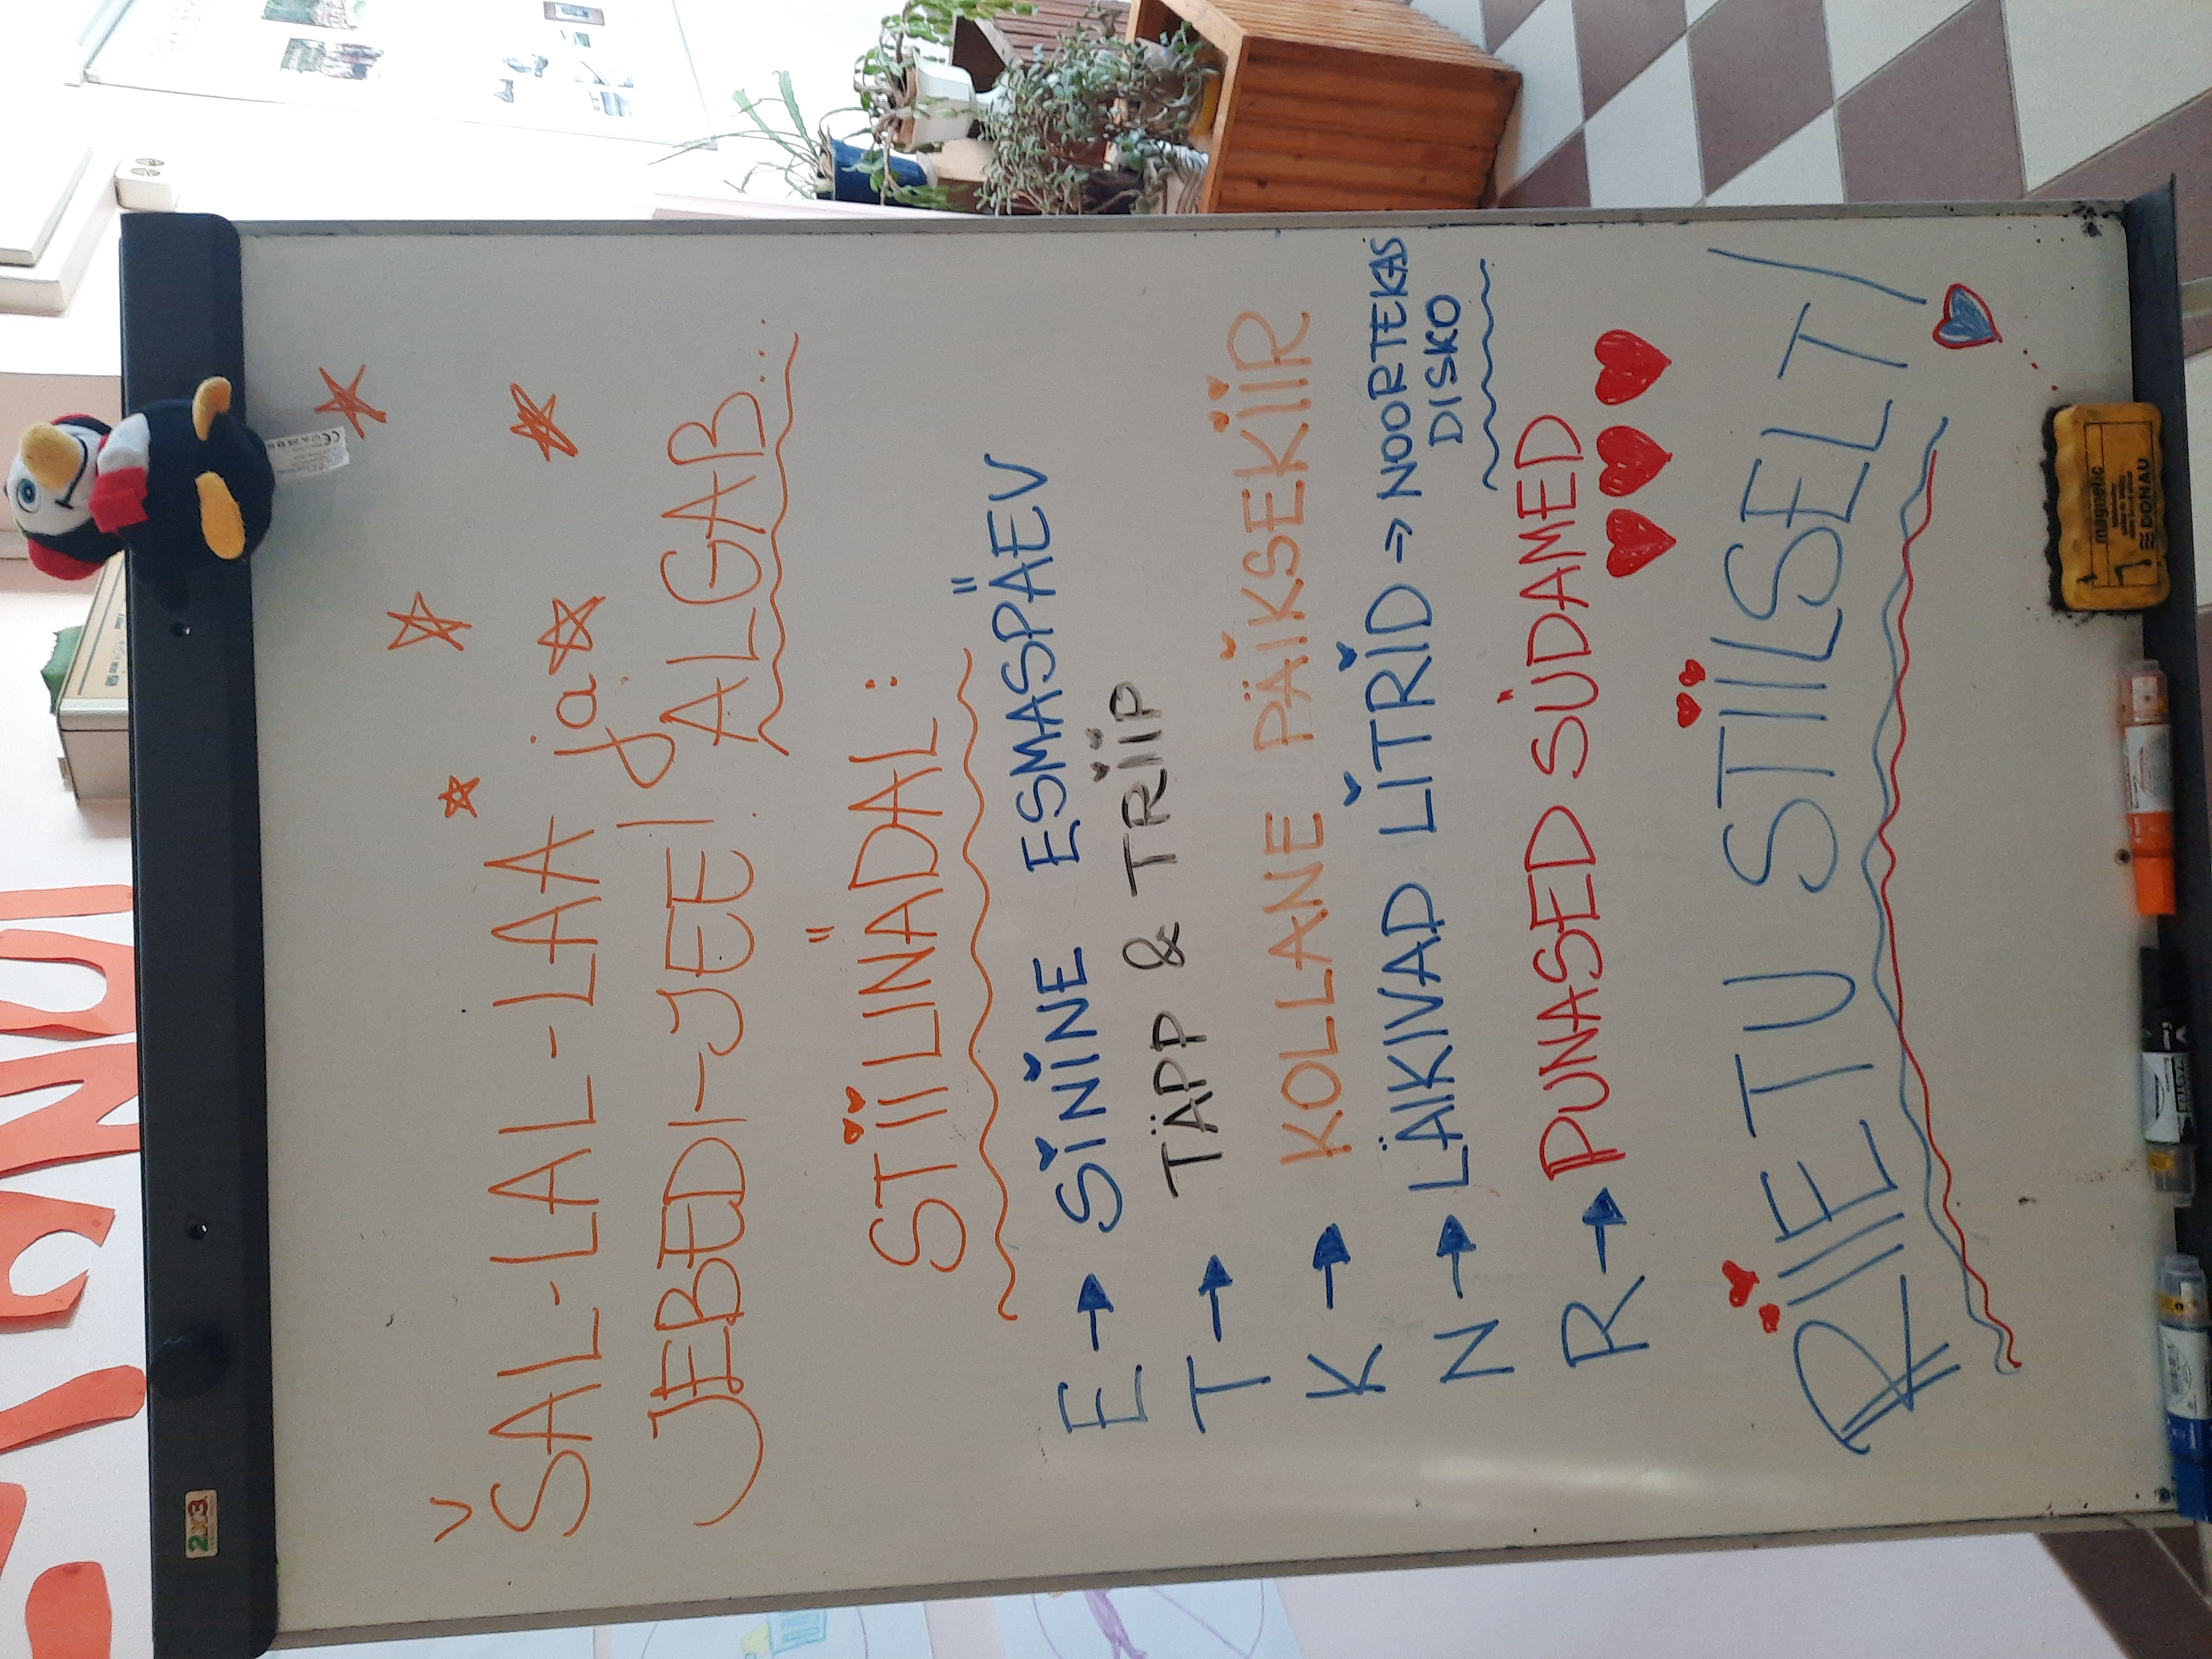 ŠAL-LAL-LAA ja
JEBEDI-JEE! ALGAB...
STIILINÄDAL:
E → SININE ESMASPÄEV
T → TÄPP & TRIIP
K → KOLLANE PÄIKSEKIIR
N → LÄIKIVAD LITRID => NOORTEKAS
DISKO
R → PUNASED SÜDAMED
RIIETU STIILSELT!
2x3
magnetic
DONAU